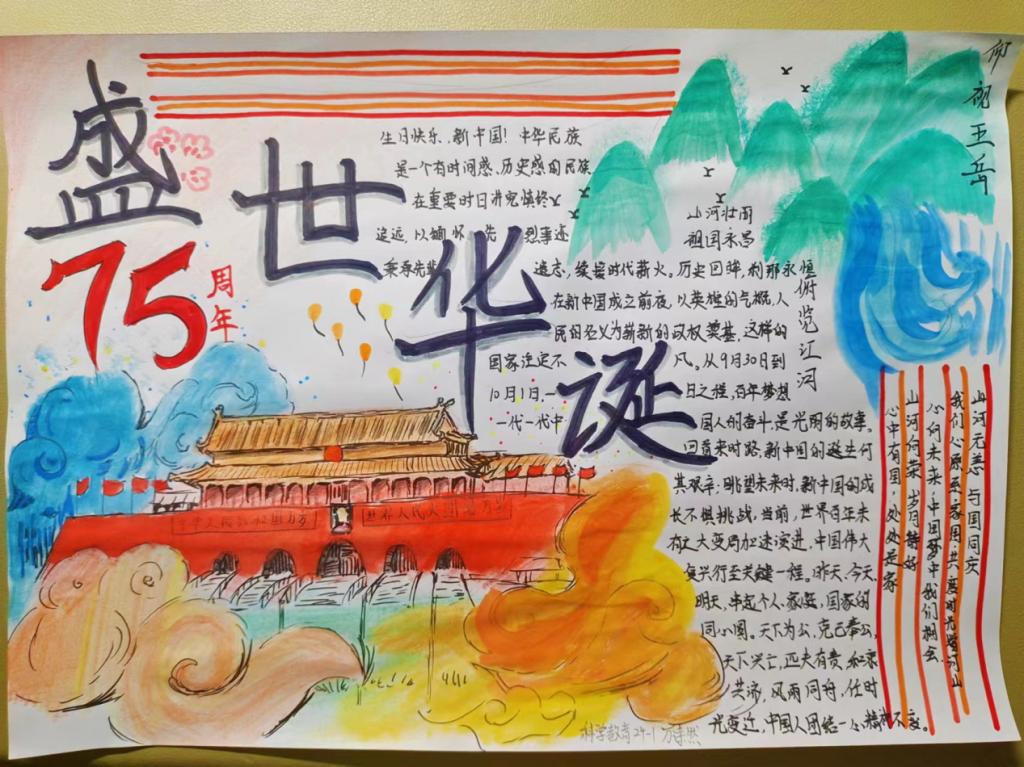 盛世华诞
75
周年
生日快乐,新中国!中华民族
是一个有时间感、历史感的民族
在重要时日讲究慎终
追远,以缅怀先烈事迹
秉寿先辈遗志,续接时代薪火。历史回眸,刹那永恒
在新中国成立前夜,以英雄的气概,人
民的名义为崭新的政权奠基,这样的
国家注定不凡。从9月30日到
10月1日,一日之程,百年梦想
一代一代中国人的奋斗,是光明的故事。
回首来时路,新中国的诞生何
其艰辛;眺望未来时,新中国的成
长不惧挑战,当前,世界百年未
有之大变局加速演进,中国伟大
复兴行至关键一程。昨天、今天、
明天,串起个人、家庭、国家的
同心圆。天下为公,克己奉公,
天下兴亡,匹夫有责,和衷
共济,风雨同舟,任时
光变迁,中国人团结一心精神不变。
山河壮阔
祖国永昌
俯览江河
仰观五岳
山河无恙 与国同庆
我们心愿系家国共度时光贺河山
心向未来,中国梦中我们相会
山河向荣 岁月特好
心中有国,处处是家
中华人民共和国万岁
世界人民大团结万岁
科学教育24-1